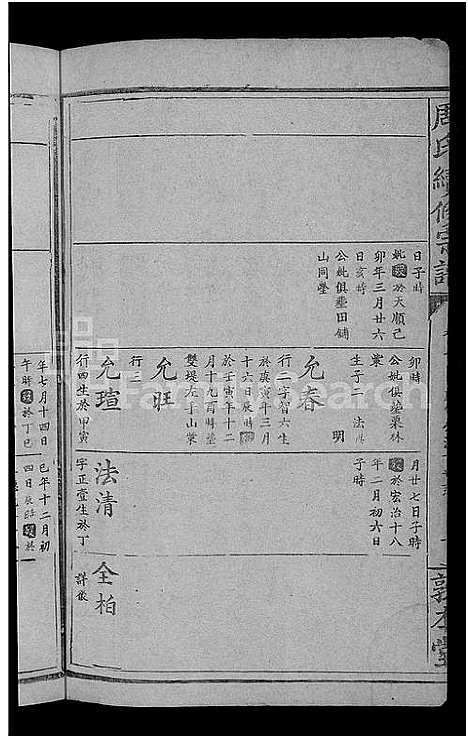 周氏續修宗譜
敦本堂
日子時
妣歿於天順己
卯年三月廿六
日亥時
公妣俱塟田鋪
山同塋
卯時
公妣俱塟栗林
窠
生子二 法
明
允春
行二字智六生
於庚寅年三月
十六日辰時
於壬寅年十二
月十九酉時塟
雙堤左手山窠
允旺
行三
允瑄
行四生於甲寅
年七月十四日
午時歿於丁巳
月廿七日子時
歿於宏治十八
年二月初六日
子時
法清
字正壹生於丁
巳年十二月初
四日辰時歿於
全柏
詳後